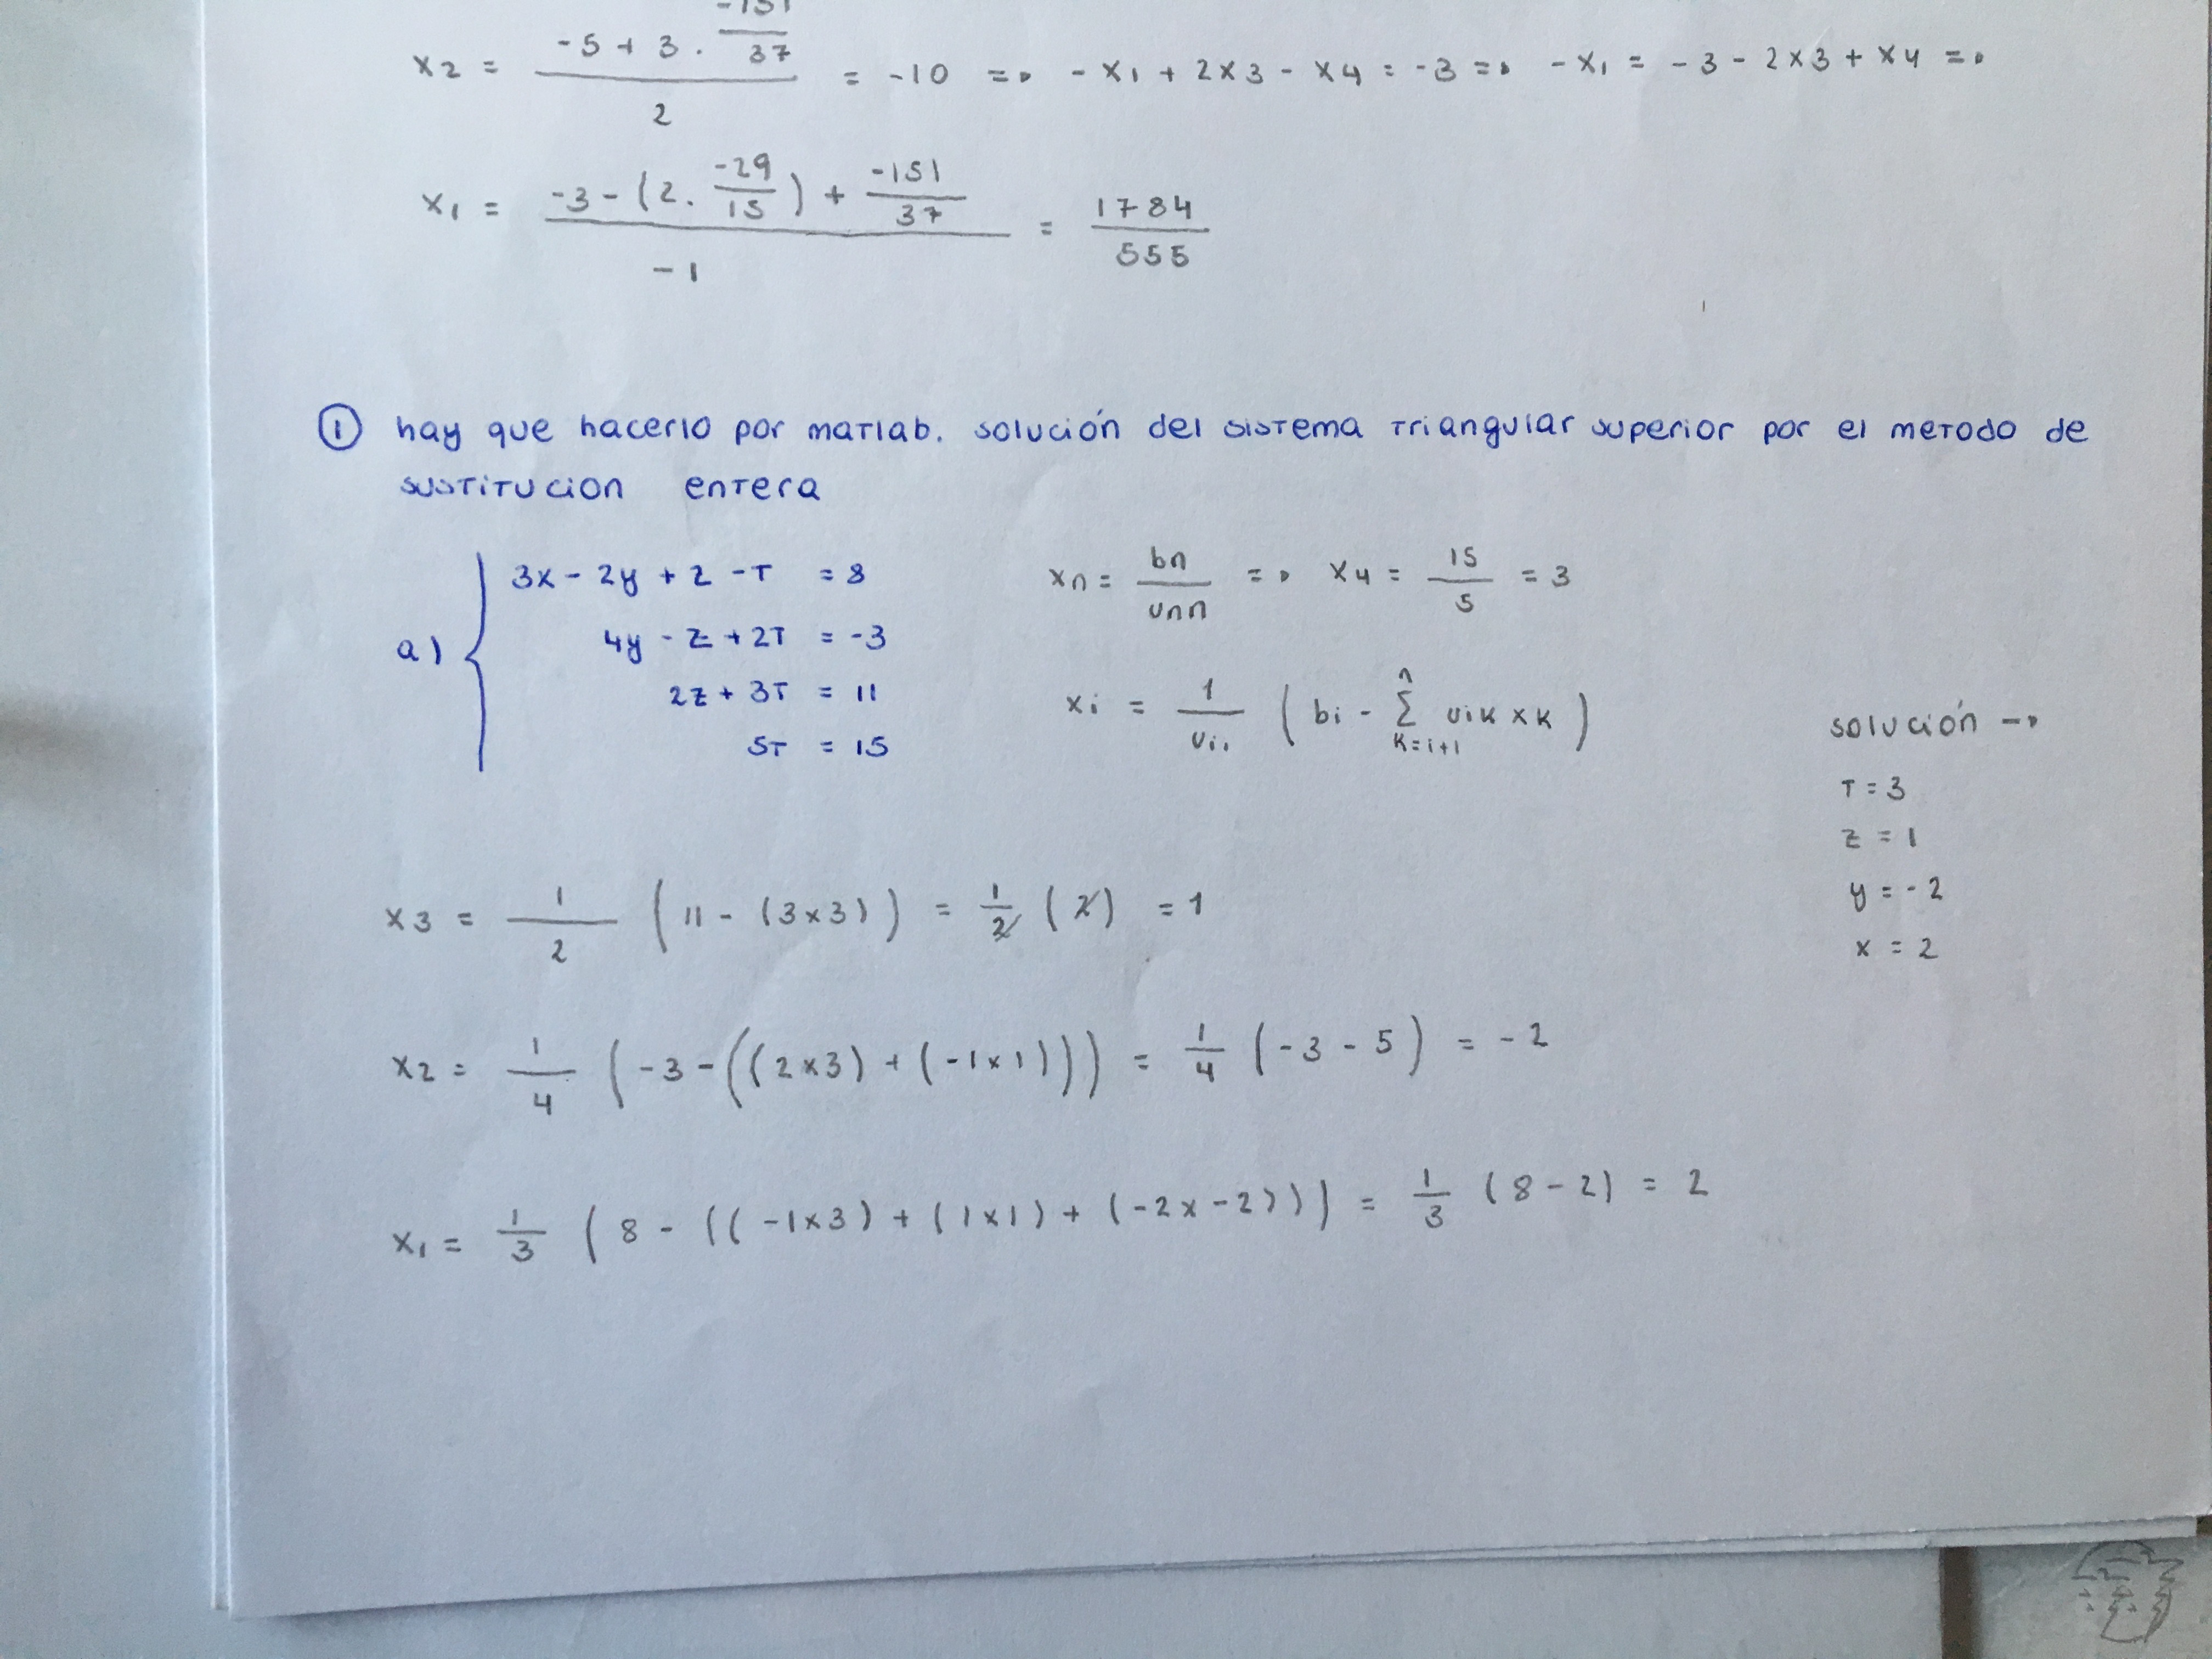 x2 = (-5 + 3 · -151/37) / 2 = -10 => -x1 + 2x3 - x4 = -3 => -x1 = -3 - 2x3 + x4 =>
x1 = (-3 - (2 · -29/15) + -151/37) / -1 = 1784/555
① hay que hacerlo por matlab. solución del sistema triangular superior por el metodo de
sustitucion entera
a) { 3x - 2y + z - T = 8
4y - z + 2T = -3
2z + 3T = 11
5T = 15
xn = bn/unn => x4 = 15/5 = 3
xi = 1/uii (bi - Σ_{k=i+1}^{n} uik xk)
solución →
T = 3
z = 1
y = -2
x = 2
x3 = 1/2 (11 - (3x3)) = 1/2 (2) = 1
x2 = 1/4 (-3 - ((2x3) + (-1x1))) = 1/4 (-3 - 5) = -2
x1 = 1/3 (8 - ((-1x3) + (1x1) + (-2x-2))) = 1/3 (8 - 2) = 2